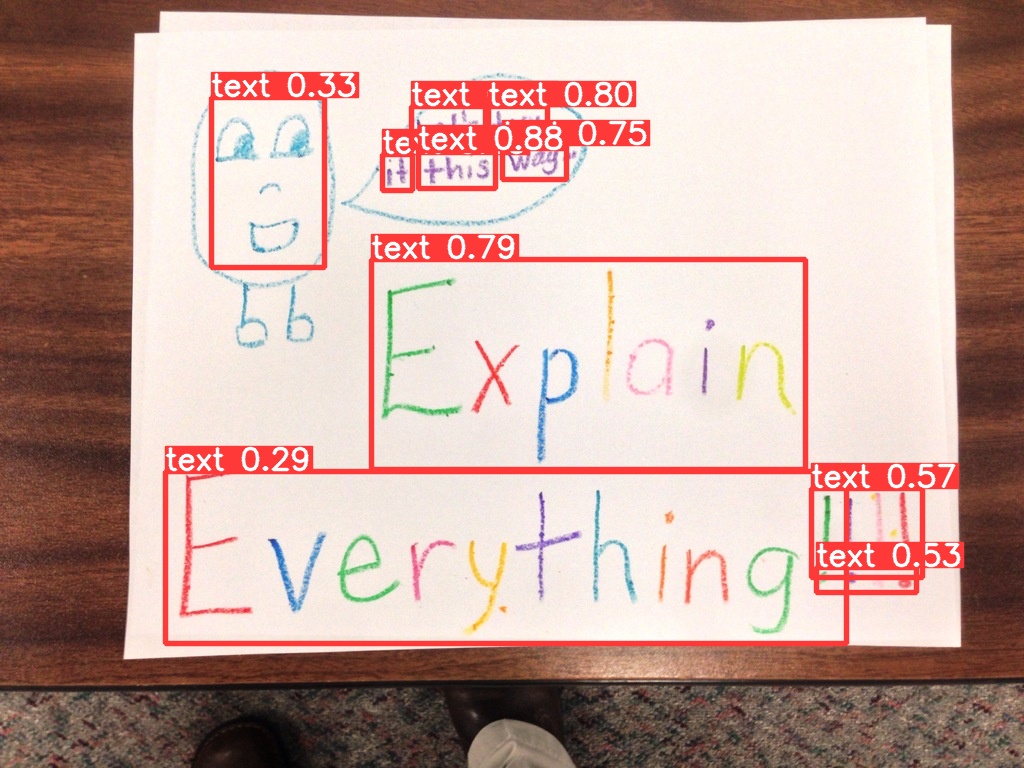 text 0.33
text text 0.80
text 0.88 0.75
it this way.
text 0.79
Explain
text 0.29
text 0.57
Everything!!!!
text 0.53